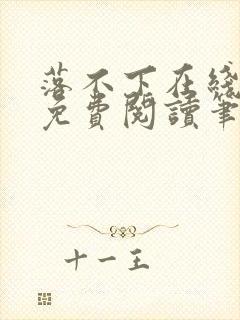 落不下在线
免費閱讀筆
十一王